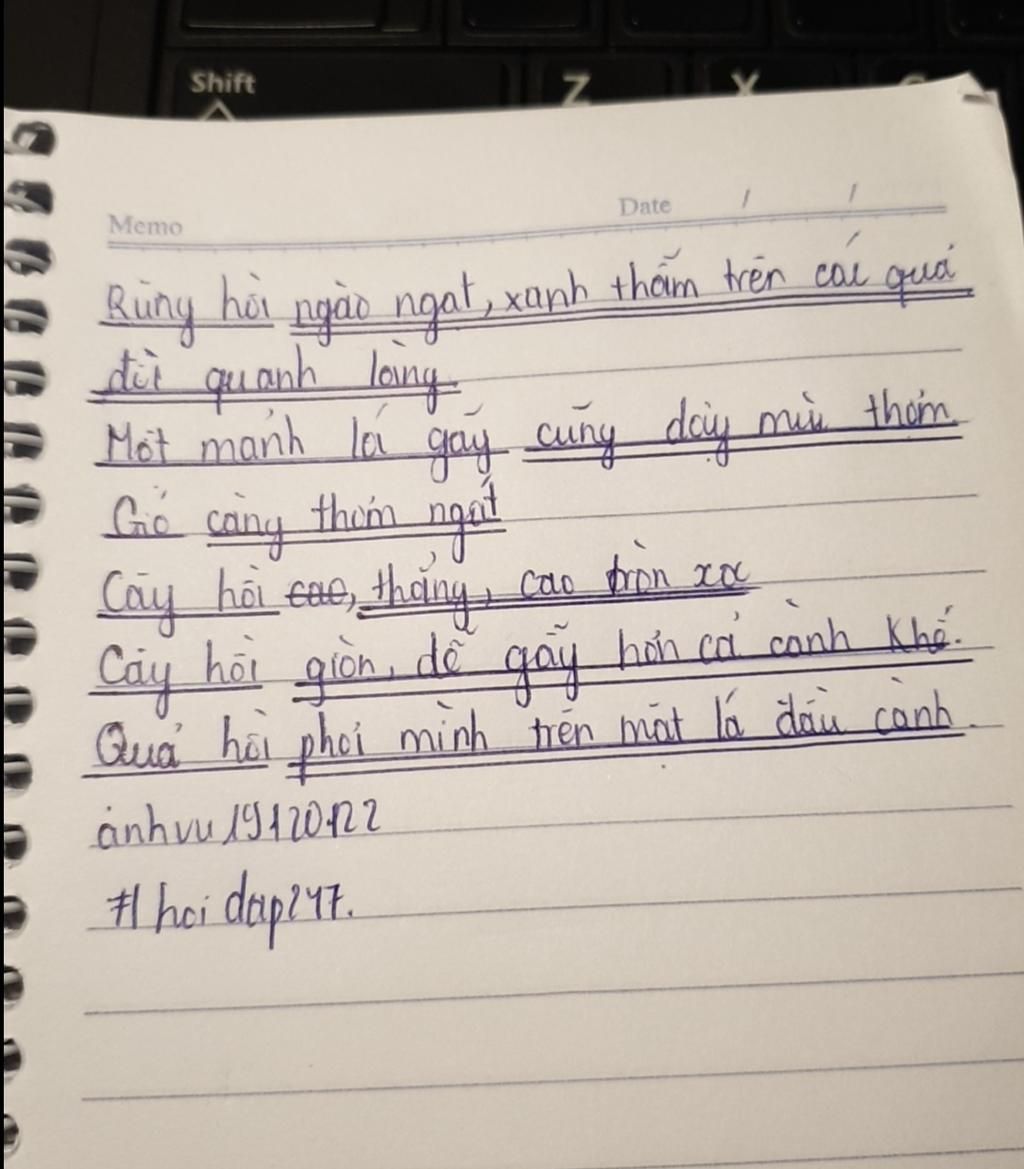 Shift
Z
X
Memo
Date / /
Rừng hồi ngào ngạt, xanh thẫm trên các quả
đồi quanh làng
Một mảnh lá gãy cũng dậy mùi thơm
Gió càng thơm ngát
Cây hồi cao, thẳng, cao tròn xoe
Cây hồi giòn, dễ gãy hơn cả cành khế.
Quả hồi phơi mình trên mặt lá đầu cành.
anhvu19120122
#hoidap247.